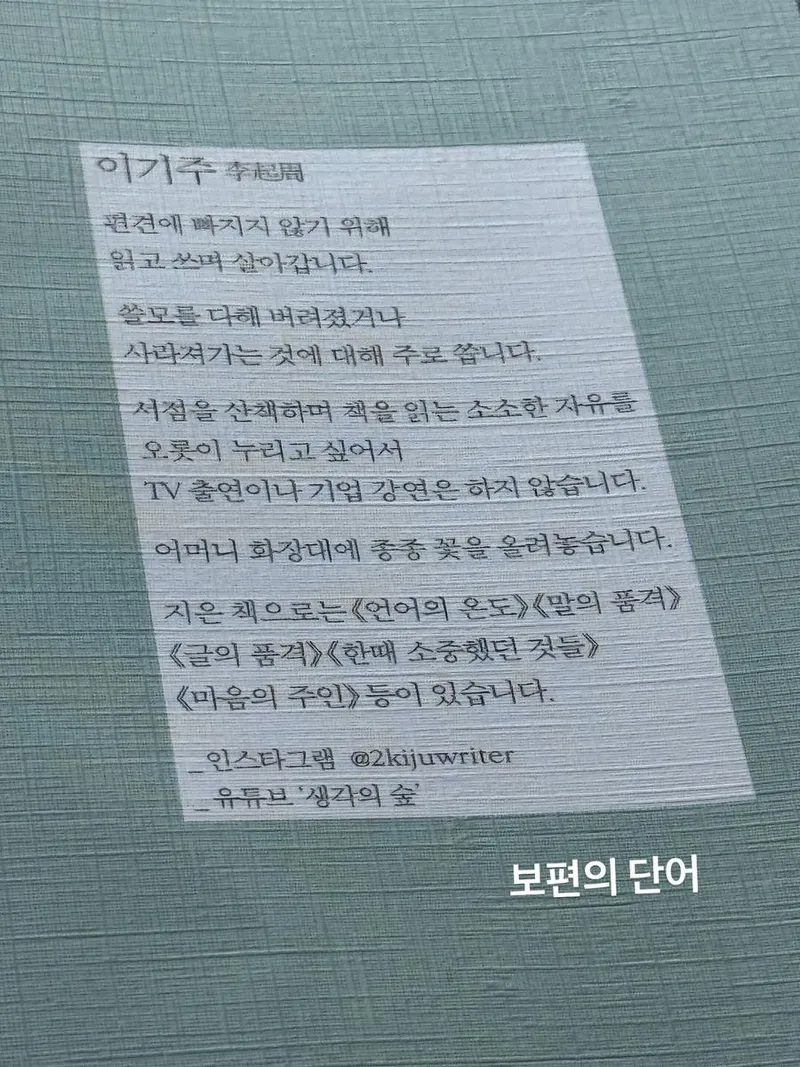 이기주 李起周
편견에 빠지지 않기 위해
읽고 쓰며 살아갑니다.
쓸모를 다해 버려졌거나
사라져가는 것에 대해 주로 씁니다.
서점을 산책하며 책을 읽는 소소한 자유를
오롯이 누리고 싶어서
TV 출연이나 기업 강연은 하지 않습니다.
어머니 화장대에 종종 꽃을 올려놓습니다.
지은 책으로는 《언어의 온도》 《말의 품격》
《글의 품격》 《한때 소중했던 것들》
《마음의 주인》 등이 있습니다.
_인스타그램 @2kijuwriter
_유튜브 '생각의 숲'
보편의 단어